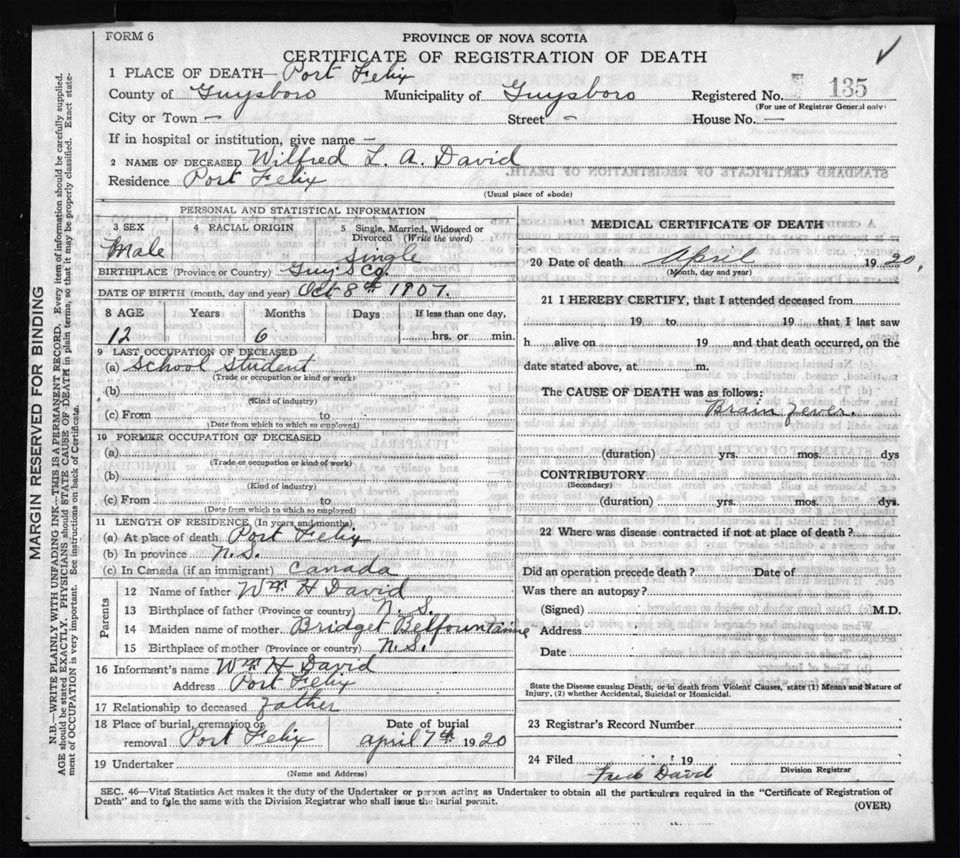 FORM 6
PROVINCE OF NOVA SCOTIA
CERTIFICATE OF REGISTRATION OF DEATH
1 PLACE OF DEATH— Port Felix
County of Guysboro Municipality of Guysboro Registered No. 135
(For use of Registrar General only)
City or Town — Street — House No. —
If in hospital or institution, give name —
2 NAME OF DECEASED Wilfred L. A. David
Residence Port Felix
(Usual place of abode)
PERSONAL AND STATISTICAL INFORMATION
3 SEX 4 RACIAL ORIGIN 5 Single, Married, Widowed or Divorced (Write the word)
Male Single
BIRTHPLACE (Province or Country) Guy's Co.
DATE OF BIRTH (month, day and year) Oct 8th 1907.
8 AGE Years Months Days If less than one day,
12 6 hrs. or min.
9 LAST OCCUPATION OF DECEASED
(a) School Student
(Trade or occupation or kind of work)
(b)
(Kind of industry)
(c) From to
(Date from which to which so employed)
10 FORMER OCCUPATION OF DECEASED
(a)
(Trade or occupation or kind of work)
(b)
(Kind of industry)
(c) From to
(Date from which to which so employed)
11 LENGTH OF RESIDENCE (In years and months)
(a) At place of death Port Felix
(b) In province N.S.
(c) In Canada (if an immigrant) Canada
Parents
12 Name of father Wm H David
13 Birthplace of father (Province or country) N. S.
14 Maiden name of mother Bridget Belfountaine
15 Birthplace of mother (Province or country) N.S.
16 Informant's name Wm H David
Address Port Felix
17 Relationship to deceased Father
18 Place of burial, cremation or removal Port Felix
Date of burial April 7th 1920
19 Undertaker
(Name and Address)
MEDICAL CERTIFICATE OF DEATH
20 Date of death April 1920.
(Month, day and year)
21 I HEREBY CERTIFY, that I attended deceased from
19 to 19 that I last saw
h alive on 19 and that death occurred, on the
date stated above, at m.
The CAUSE OF DEATH was as follows:
Brain fever.
(duration) yrs. mos. dys
CONTRIBUTORY
(Secondary)
(duration) yrs. mos. dys.
22 Where was disease contracted if not at place of death?
Did an operation precede death? Date of
Was there an autopsy?
(Signed) M.D.
Address
Date
State the Disease causing Death, or in death from Violent Causes, state (1) Means and Nature of
Injury, (2) whether Accidental, Suicidal or Homicidal.
23 Registrar's Record Number
24 Filed 19
Fred David
Division Registrar
SEC. 46—Vital Statistics Act makes it the duty of the Undertaker or person acting as Undertaker to obtain all the particulars required in the "Certificate of Registration of
Death" and to file the same with the Division Registrar who shall issue the burial permit.
(OVER)
MARGIN RESERVED FOR BINDING
N.B.—WRITE PLAINLY WITH UNFADING INK—THIS IS A PERMANENT RECORD. Every item of information should be carefully supplied.
AGE should be stated EXACTLY. PHYSICIANS should STATE CAUSE OF DEATH in plain terms, so that it may be properly classified. Exact state-
ment of OCCUPATION is very important. See instructions on back of Certificate.